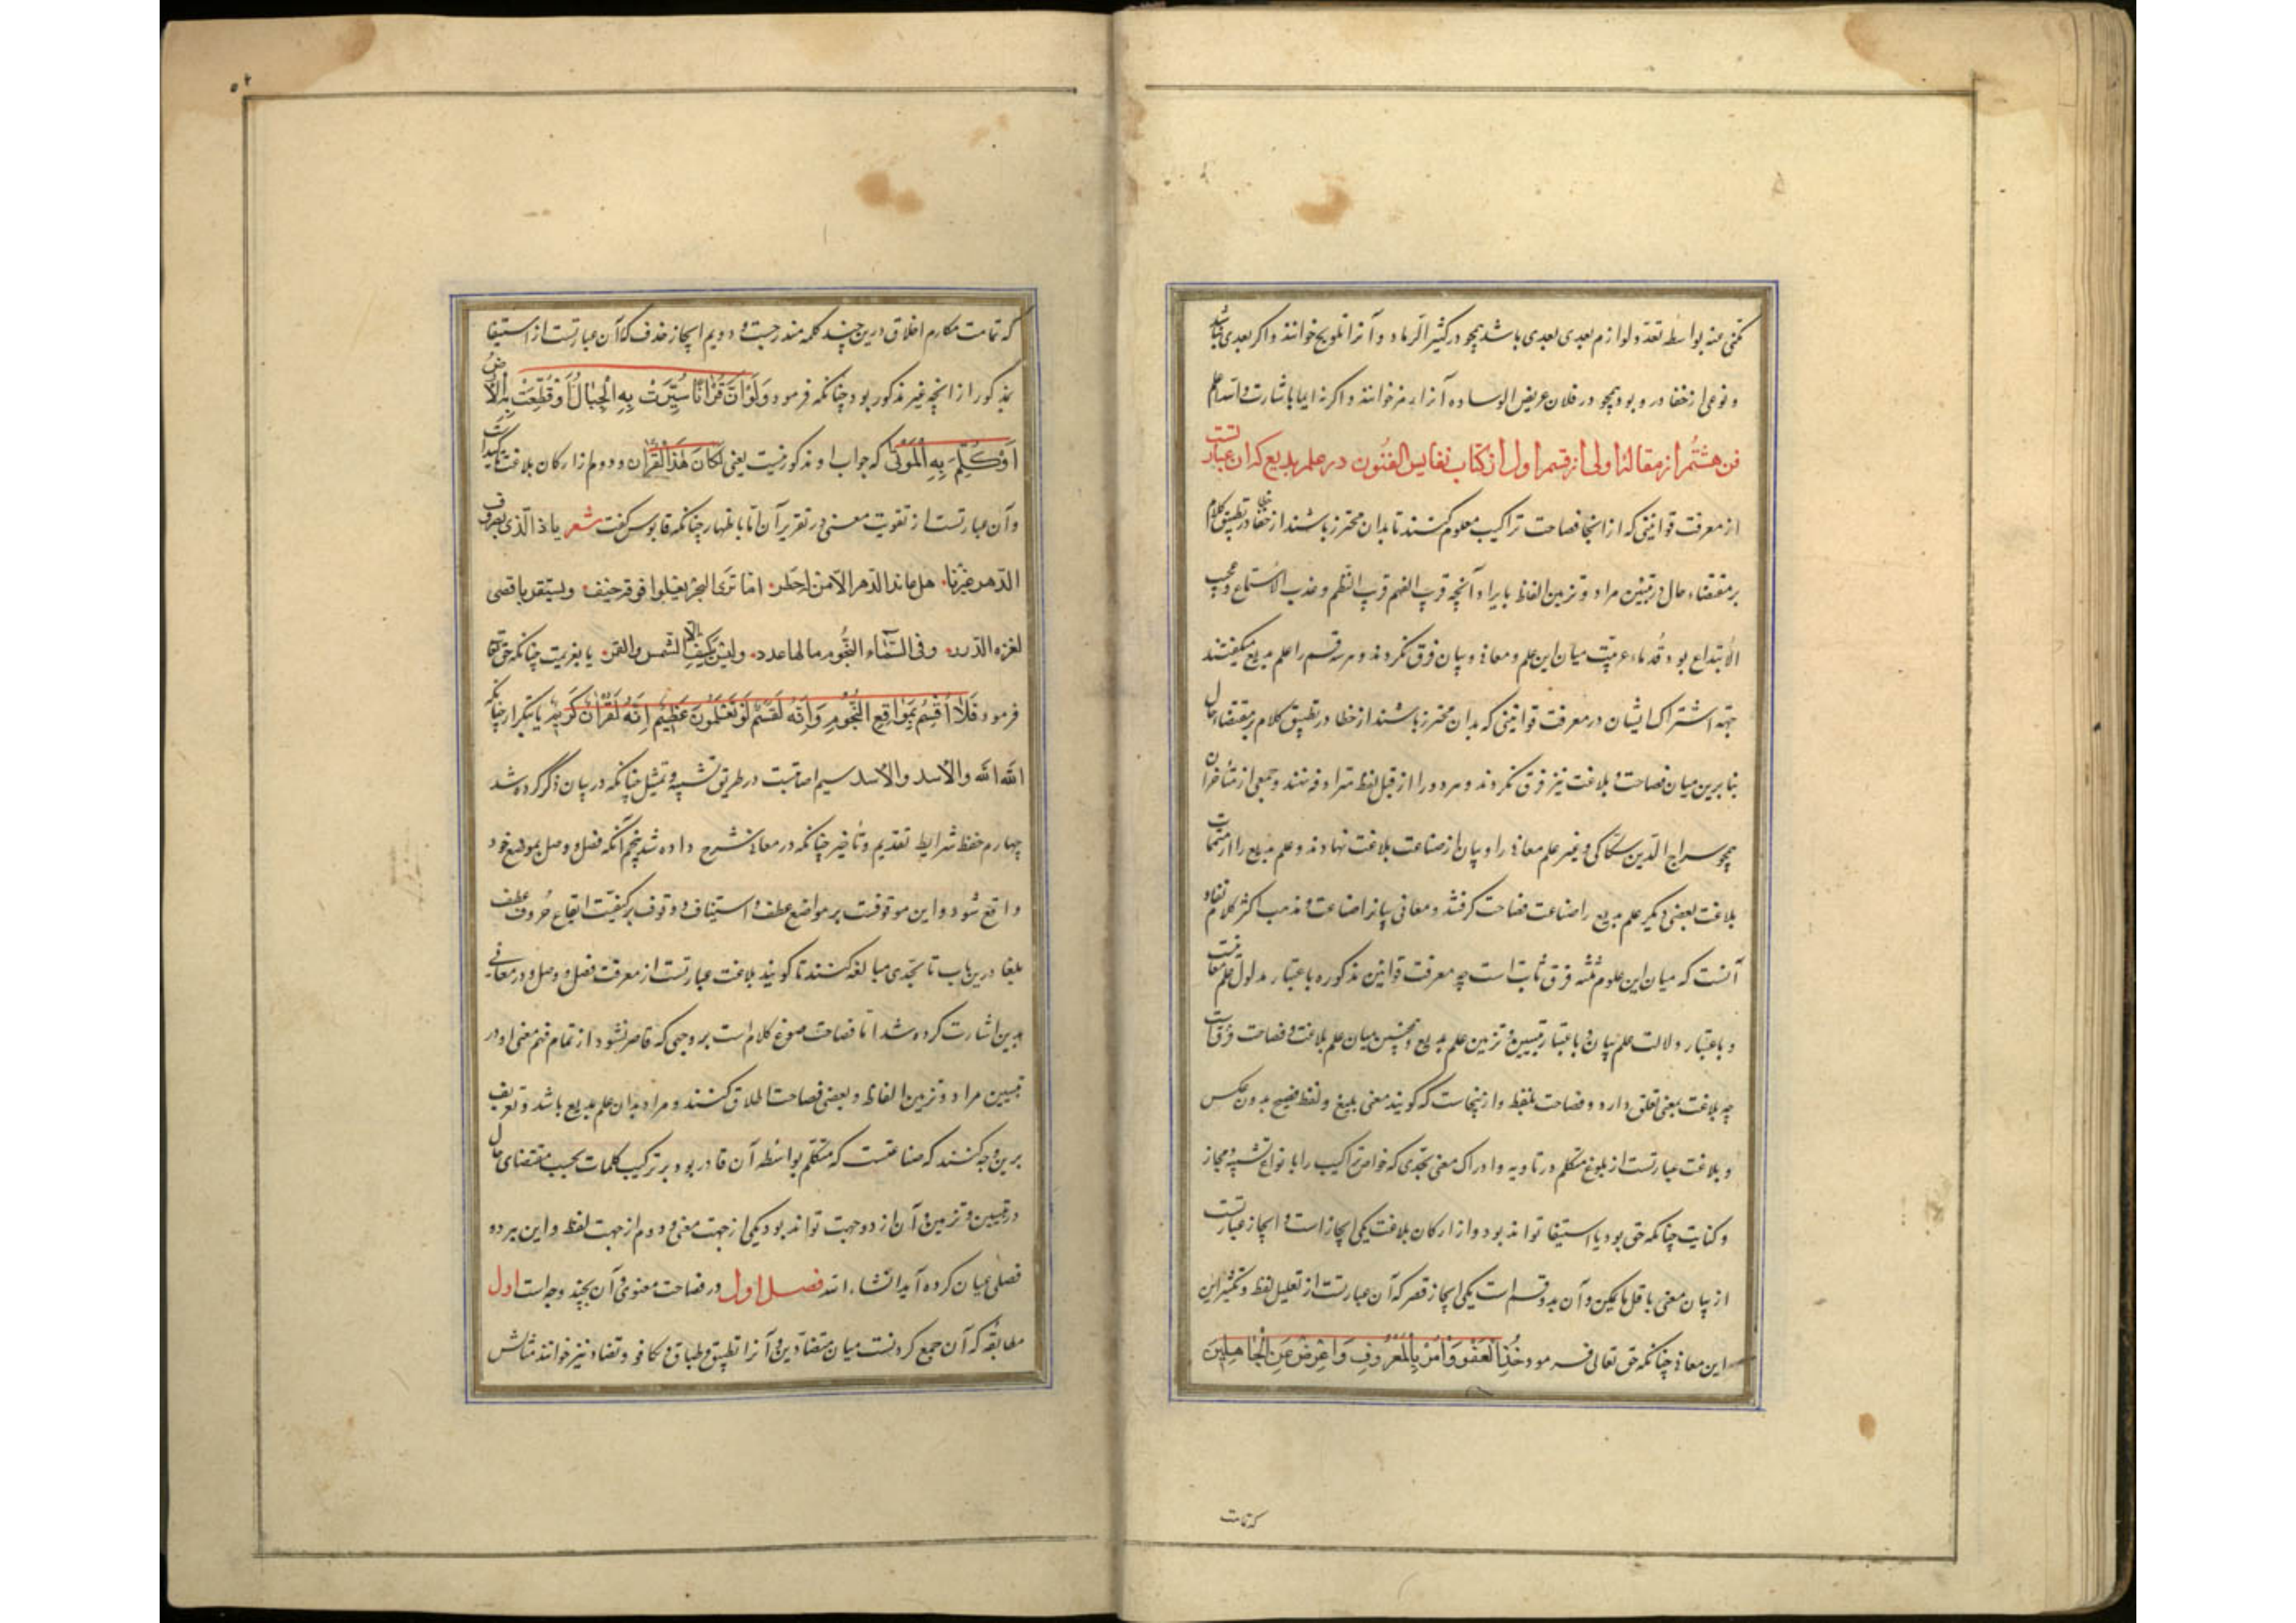 مکنی عنه بواسطه تعدد لوازم بعدی بعدی باشد همچو در کثیر الرماد و آنرا تلویح خوانند و اگر بعدی نباشد
و نوعی از خفا درو بود همچو در فلان عریض الوساده آنرا رمز خوانند و اگر نه ایما یا اشارت و الله اعلم
فن هشتم از مقالهٔ اولی از قسم اول از کتاب نفایس الفنون در علم بدیع که آن عبارتست
از معرفت قوانینی که از آنجا فصاحت تراکیب معلوم کنند تا بدان محترز باشند از خطا در تطبیق کلام
بر مقتضاء حال در تبیین مراد و تزیین الفاظ بایراد آنچه قریب الفهم قریب النظم و عذب الاستماع و عجیب
الابتداع بود و قدماء عربیت میان این علم و معانی و بیان فرق نکردند و هر سه قسم را علم بدیع میگفتند
جهة اشتراک ایشان در معرفت قوانینی که بدان محترز باشند از خطا در تطبیق کلام بر مقتضاء حال
بنا برین میان فصاحت و بلاغت نیز فرق نکردند و هر دو را از قبیل لفظ مترادفه نهند و جمعی از متأخران
همچو سراج الدین سکاکی و غیر علم معانی را و بیان از صناعت بلاغت نهادند و علم بدیع را از متممات
بلاغت بعضی دیگر علم بدیع را صناعت فصاحت گرفتند و معانی بیانرا صناعت و مذهب اکثر کلام نقاد
آنست که میان این علوم ثلثه فرق ثابت است چه معرفت قوانین مذکوره باعتبار مدلول علم معانیست
و باعتبار دلالت علم بیان و باعتبار تبیین و تزیین علم بدیع و همچنین میان علم بلاغت و فصاحت فرقست
چه بلاغت بمعنی تعلق دارد و فصاحت بلفظ و از ینجاست که گویند معنی بلیغ و لفظ فصیح بدون عکس
و بلاغت عبارتست از بلوغ متکلم در تأدیه و ادراک معنی بحدی که خواص تراکیب را با نواع تشبیه و مجاز
و کنایت چنانکه حق بود با استیفا تواند بود و از ارکان بلاغت یکی ایجاز است و ایجاز عبارتست
از بیان معنی باقل ما یمکن و آن بدو قسم است یکی ایجاز قصر که آن عبارتست از تقلیل لفظ و تکثیر این
این معانی چنانکه حق تعالی فرمود خُذِ الْعَفْوَ وَأْمُرْ بِالْمَعْرُوفِ وَاَعْرِضْ عَنِ الْجَاهِلِینَ
که تمامت
که تمامت مکارم اخلاق درین چند کلمه مندرجست و دویم ایجاز حذف که آن عبارتست از استیفا
مذکور از آنچه غیر مذکور بود چنانکه فرمود وَلَوْ اَنَّ قُرْاٰنًا سُیِّرَتْ بِهِ الْجِبَالُ اَوْ قُطِّعَتْ بِهِ الْاَرْضُ
اَوْ کُلِّمَ بِهِ الْمَوْتٰی که جواب او مذکور نیست یعنی لَکَانَ هٰذَا الْقُرْاٰن و دوم از ارکان بلاغت تاکیدست
و آن عبارتست از تقویت معنی در تقریر آن اما باظهار چنانکه قابوس گفت شعر یا ذا الذی بصروف
الدهر عیرنا هل عاند الدهر الا من له خطر اما تری البحر یعلوا فوقه جیف و یستقر باقصی
لغزه الدرر و فی السماء النجوم ما لها عدد ولیس یکسف الا الشمس والقمر یا بعزیمت چنانکه حق تعالی
فرمود فَلَا اُقْسِمُ بِمَوَاقِعِ النُّجُومِ وَاِنَّهُ لَقَسَمٌ لَوْ تَعْلَمُونَ عَظِیمٌ اِنَّهُ لَقُرْاٰنٌ کَرِیمٌ یا بتکرار چنانکه
الله الله والاسد والاسد سیم اصابتست در طریق تشبیه و تمثیل چنانکه در بیان ذکر کرده شد
چهارم حفظ شرایط تقدیم و تاخیر چنانکه در معانی شرح داده شد پنجم آنکه فصل و وصل بموضع خود
واقع شود و این موقوفست بر مواضع عطف و استیناف و وقوف بر کیفیت ایقاع حروف عطف
بلغا درین باب تا بحدی مبالغه کنند تا گویند بلاغت عبارتست از معرفت فصل و وصل و در معانی
بدین اشارت کرده شد اما فصاحت صوغ کلام است بر وجهی که قاصر نشود از تمام فهم معنی او در
تبیین مراد و تزیین الفاظ و بعضی فصاحت اطلاق کنند و مراد بدان علم بدیع باشد و تعریف
برین وجه کنند که صناعتست که متکلم بواسطه آن قادر بود بر ترکیب کلمات بحسب مقتضای حال
در تبیین و تزیین و آن از دو جهت تواند بود یکی از جهت معنی و دوم از جهت لفظ و این هر دو
فصلی بیان کرده آید انشاء الله فصل اول در فصاحت معنوی و آن بچند وجه است اول
مطابقه که آن جمع کردنست میان متضادین و آنرا تطبیق و طباق و تکافو و تضاد نیز خوانند مثالش